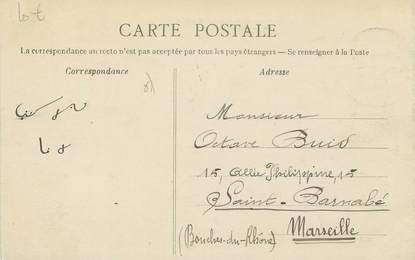 Lot
CARTE POSTALE
La correspondance au recto n'est pas acceptée par tous les pays étrangers — Se renseigner à la Poste
Correspondance
Adresse
Monsieur
Octave Buis
15, allée Philippine, 15
Saint-Barnabé
Marseille
(Bouches-du-Rhône)